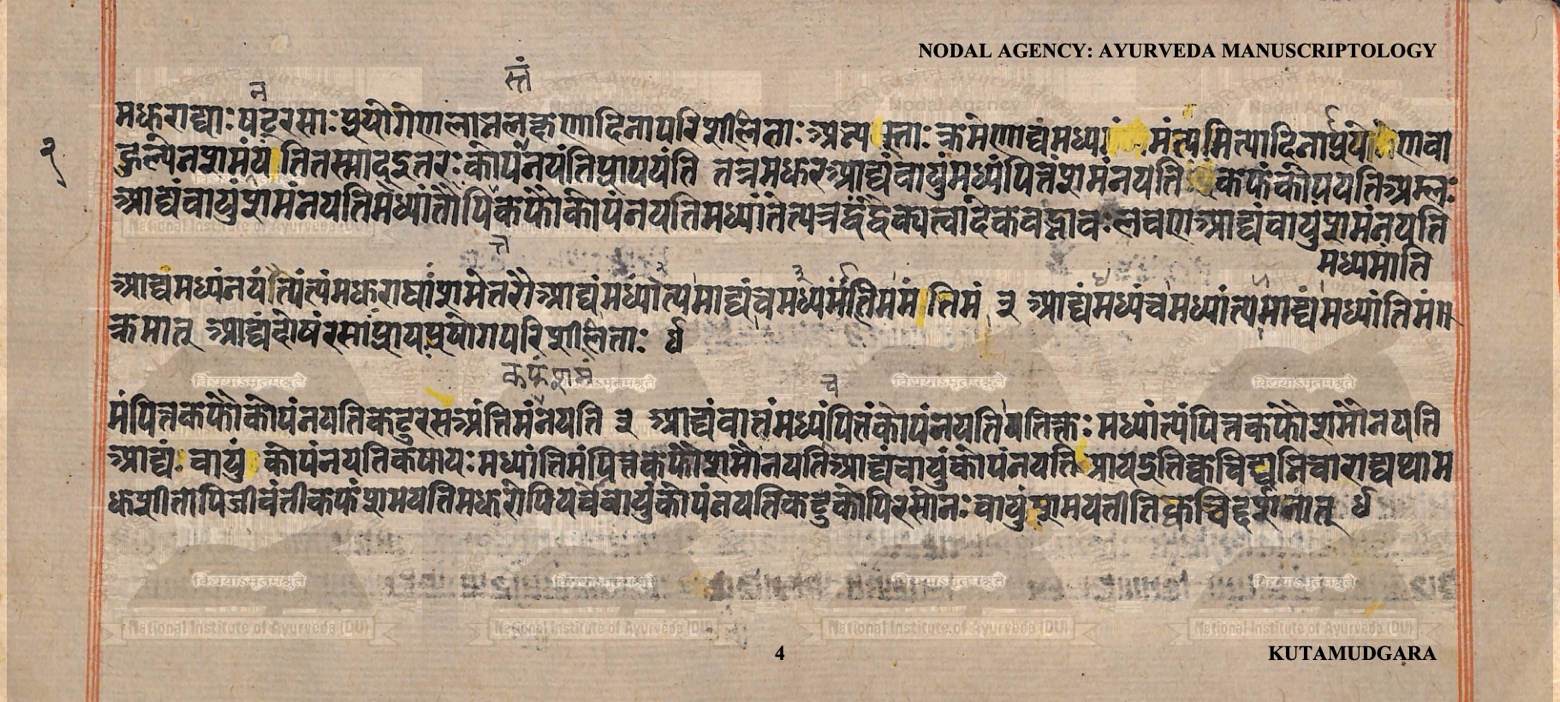 NODAL AGENCY: AYURVEDA MANUSCRIPTOLOGY
स्तं
न
मधुराद्याः षट् रसाः प्रयोगेण लानलक्षणादिना परिशीलिताः अत्य स्ताः क्रमेणाद्यं मध्य मंत्यमित्यादिना प्रयोगेण वा
२
हुल्येन शमंयं तितस्माद् इतरः कोपंनयंति प्रापयंति तत्र मधुर आद्यं वायुं मध्यं पित्तं शमंनयति कफं कोपयति अम्लः
आद्यं वायु शमंनयति मध्यांतौ पि कफौ कोपंनयति मध्यांतेत्यत्र द्वंद्वक्येत्वादेकवद्भावः लवण आद्यं वायु शमंनयति
मध्यमांति
आद्यं मध्यं नयंत्यित्यं मधुराद्यां शमेतरौ आद्यं मध्यांत्यमाद्यं च मध्यमंतिमं तिमं ३ आद्यं मध्यंच मध्यांत्यमाद्यं मध्यांतिमं॥
क्रमात् आद्यं दोषं रसां प्राय प्रयोगपरिशीलिताः र्ध
कफं शमं
च
मं पित्तकफौ कोपंनयति कटुरस अंतिमंनयति ३ आद्यं वातं मध्यं पित्तं कोपंनयति यतिक्तः मध्यांत्यं पित्तकफौ शमोनयति
आद्यं वायुं कोपंनयति कषायः मध्यांतिमं पित्तकफौ शमोनयति आद्यं वायुं कोपंनयति प्राय इति क्वचिद्
धुशीतोपि जीवंती कफं शमयति मधुरोपि यववायुं कोपंनयति कटुकोपि रसोनः वायुं शमयतीति क्वचिद्दर्शनात् र्ध
4
KUTAMUDGARA